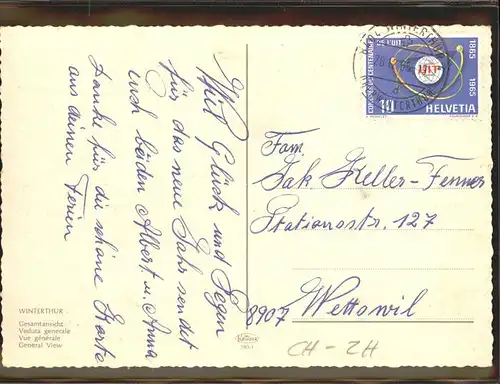 Viel Glück und Segen
für das neue Jahr sendet
euch beiden Albert u. Anna
Danke für die schöne Karte
aus deinen Ferien
WINTERTHUR
Gesamtansicht
Veduta generale
Vue générale
General View
1865
1965
10
HELVETIA
Fam.
Jak. Keller-Fenner
Stationsstr. 127
8907 Wettswil
CH-ZH